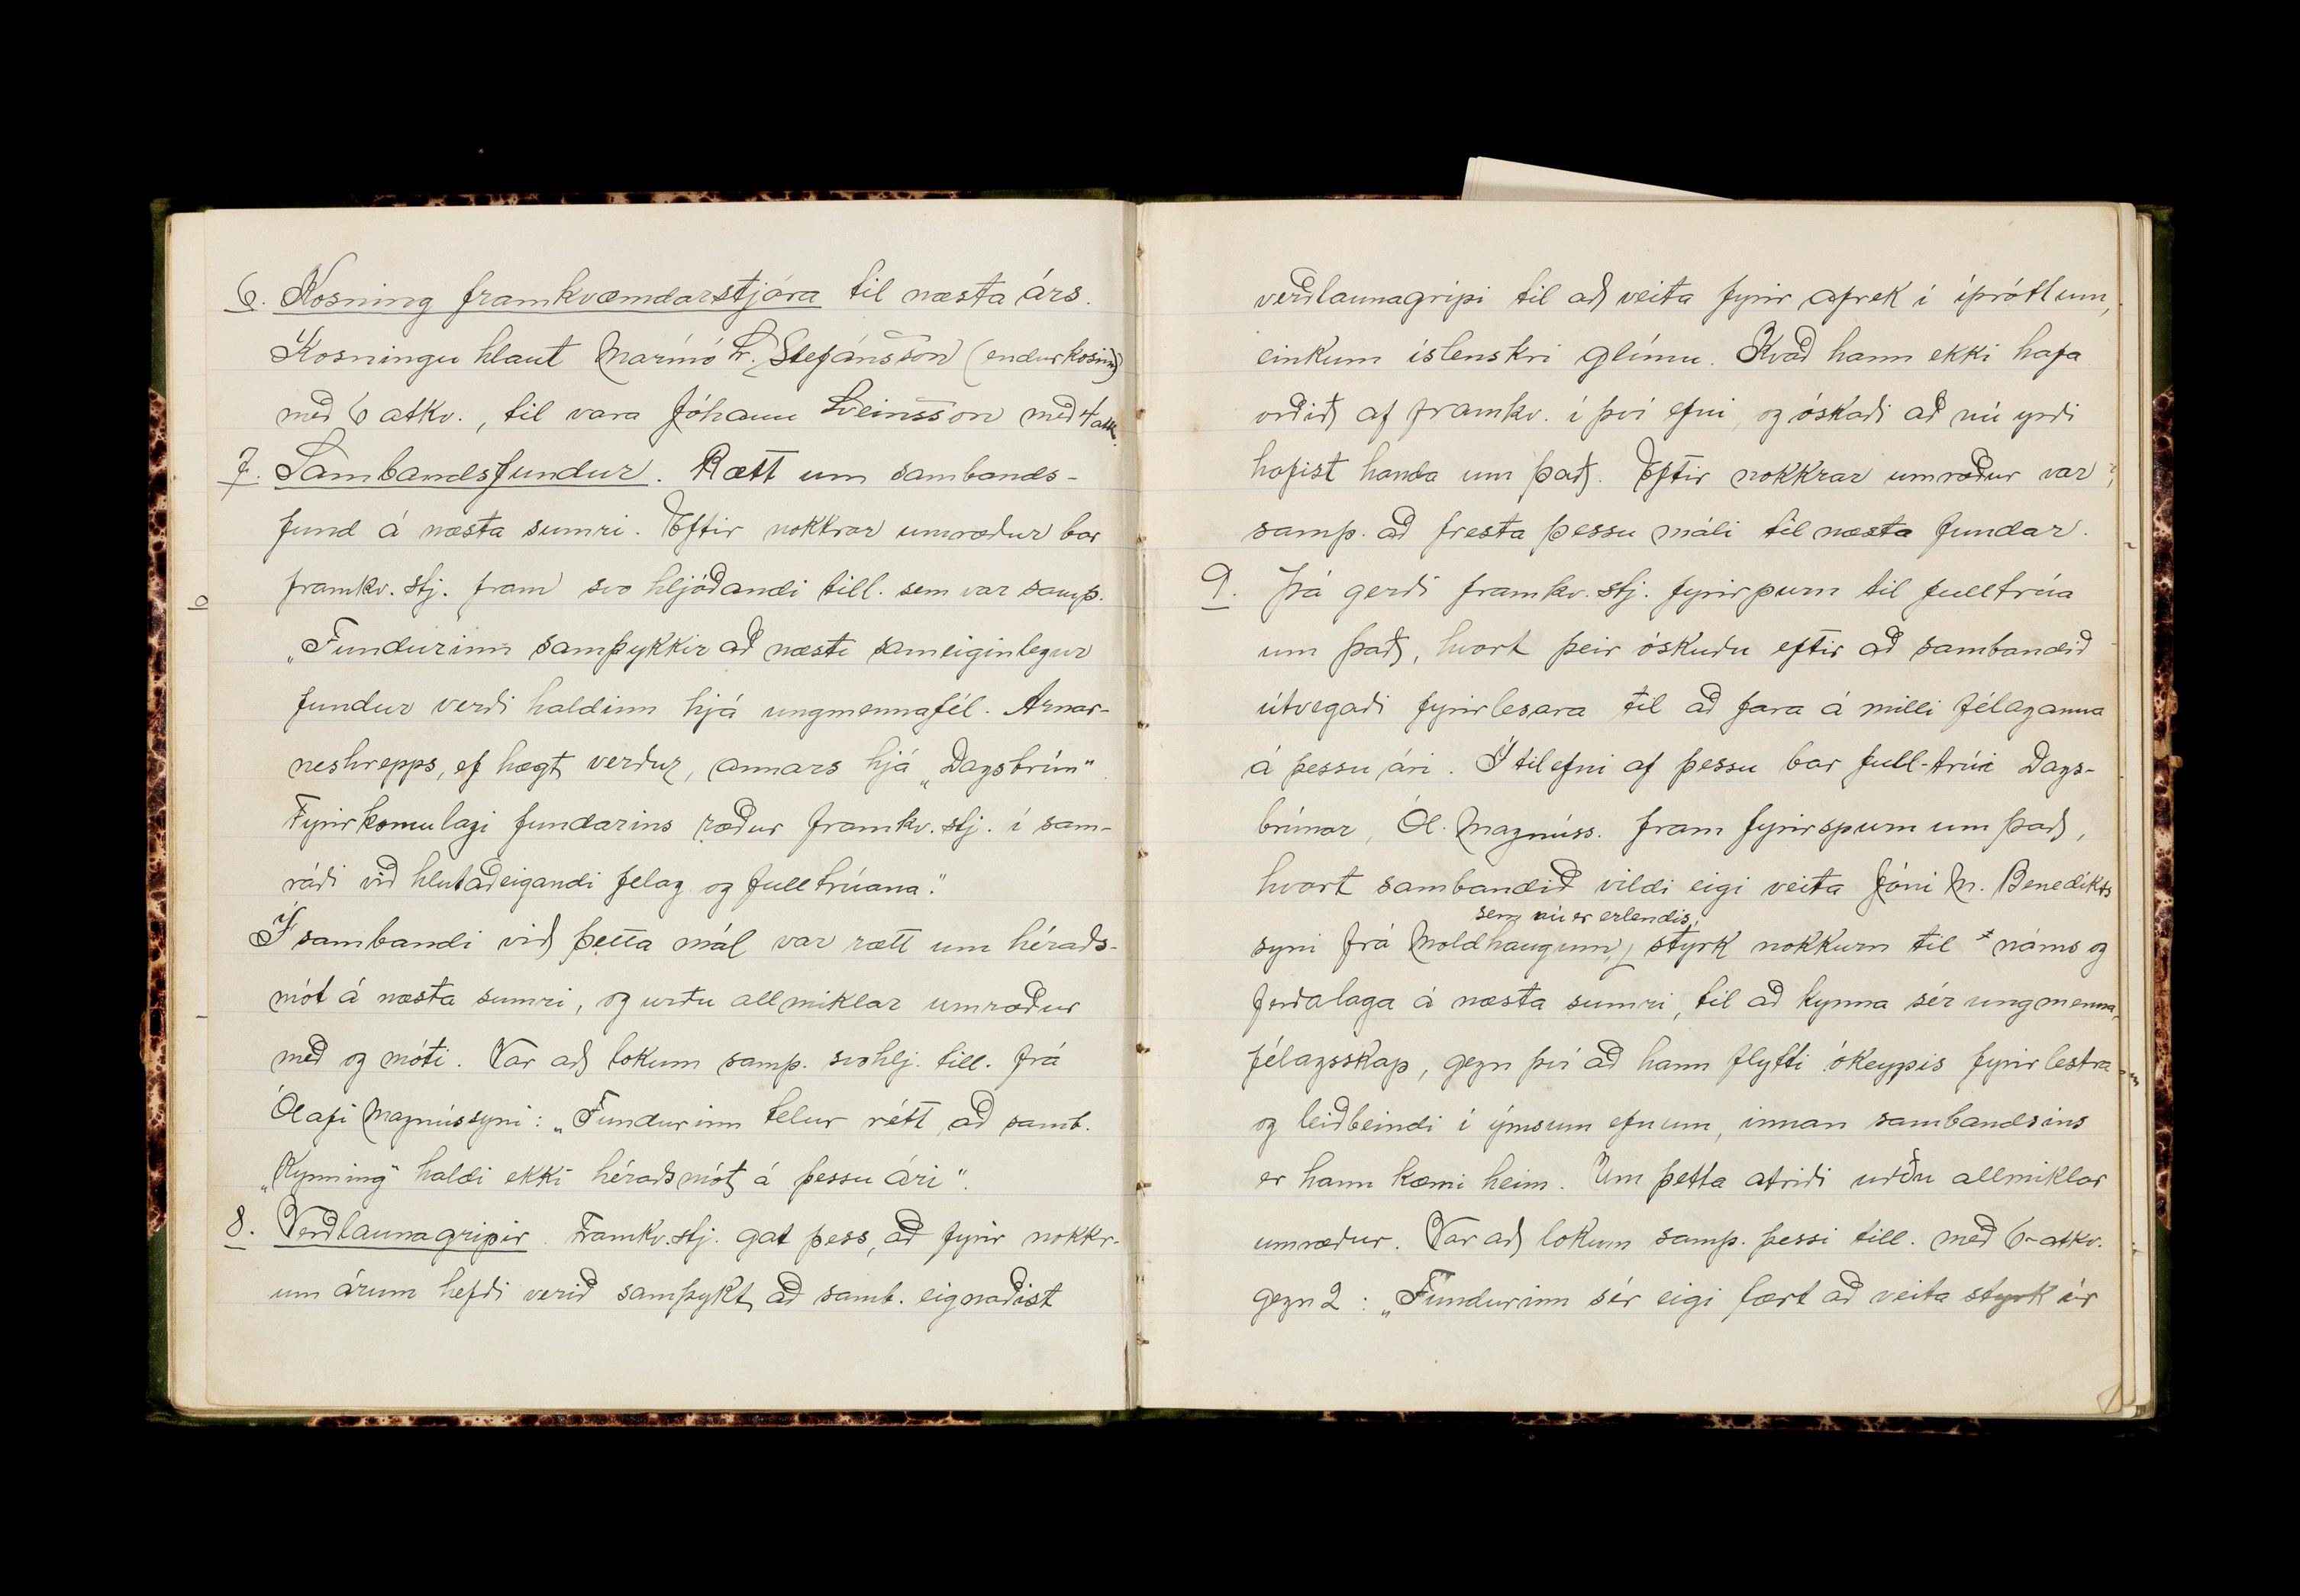 6. Kosning framkvæmdarstjóra til næsta árs.
Kosningu hlaut Marínó L. Stefánsson (endurkosinn)
með 6 atkv., til vara Jóhann Sveinsson með 4 atk.
7. Sambandsfundur. Rætt um sambands-
fund á næsta sumri. Eftir nokkrar umræður bar
framkv. stj. fram svo hljóðandi till. sem var samþ.
„Fundurinn samþykkir að næsti sameiginlegur
fundur verði haldinn hjá ungmennafél. Arnar-
neshrepps, ef hægt verður, annars hjá „Dagsbrún"
Fyrirkomulagi fundarins ræður framkv. stj. í sam-
ráði við hlutaðeigandi félag og fulltrúana."
Í sambandi við þetta mál var rætt um héraðs-
mót á næsta sumri, og urðu allmiklar umræður
með og móti. Var að lokum samþ. svohlj. till. frá
Ólafi Magnússyni: „Fundurinn telur rétt, að samb.
„Kynning" haldi ekki héraðsmót á þessu ári".
8. Verðlaunagripir. Framkv. stj. gat þess, að fyrir nokkr-
um árum hefði verið samþykt, að samb. eignaðist
verðlaunagripi til að veita fyrir afrek í íþróttum,
einkum íslenskri glímu. Kvað hann ekki hafa
orðið af framkv. í því efni, og óskaði að nú yrði
hafist handa um það. Eftir nokkrar umræður var
samþ. að fresta þessu máli til næsta fundar.
9. Þá gerði framkv. stj. fyrirspurn til fulltrúa
um það, hvort þeir óskuðu eftir að sambandið
útvegaði fyrirlesara til að fara á milli félaganna
á þessu ári. Í tilefni af þessu bar full-trúi Dags-
brúnar, Ól. Magnúss. fram fyrirspurn um það,
hvort sambandið vildi eigi veita Jóni M. Benedikts
sem nú er erlendis,
syni frá Moldhaugum, styrk nokkurn til náms og
ferðalaga á næsta sumri, til að kynna sér ungmenna-
félagsskap, gegn því að hann flytti ókeypis fyrirlestra
og leiðbeindi í ýmsum efnum, innan sambandsins
er hann kæmi heim. Um þetta atriði urðu allmiklar
umræður. Var að lokum samþ. þessi till. með 6 atkv.
gegn 2: „Fundurinn sér eigi fært að veita styrk úr